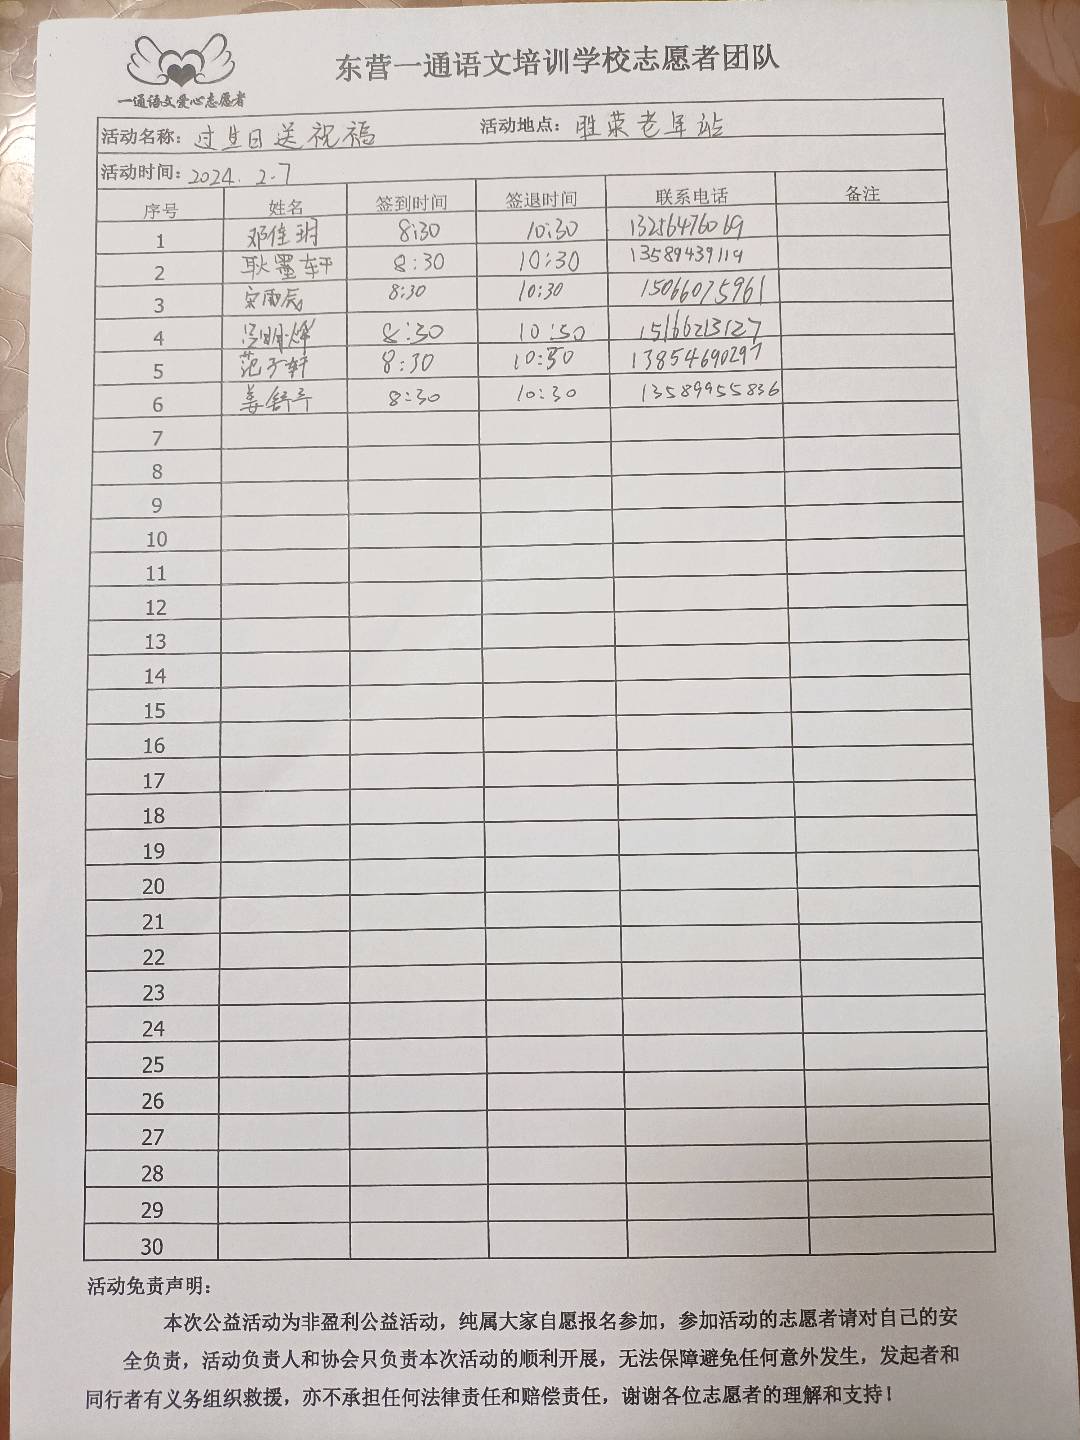 东营一通语文培训学校志愿者团队
一通语文爱心志愿者
活动名称：过生日送祝福 活动地点：胜采老年站
活动时间：2024.2.7
序号 姓名 签到时间 签退时间 联系电话 备注
1 邓佳玥 8:30 10:30 13256476069
2 耿墨轩 8:30 10:30 13589439119
3 雨辰 8:30 10:30 15066075961
4 明烨 8:30 10:30 15166213127
5 范子轩 8:30 10:30 13854690297
6 姜舒 8:30 10:30 13589955836
7
8
9
10
11
12
13
14
15
16
17
18
19
20
21
22
23
24
25
26
27
28
29
30
活动免责声明：
本次公益活动为非盈利公益活动，纯属大家自愿报名参加，参加活动的志愿者请对自己的安
全负责，活动负责人和协会只负责本次活动的顺利开展，无法保障避免任何意外发生，发起者和
同行者有义务组织救援，亦不承担任何法律责任和赔偿责任，谢谢各位志愿者的理解和支持！